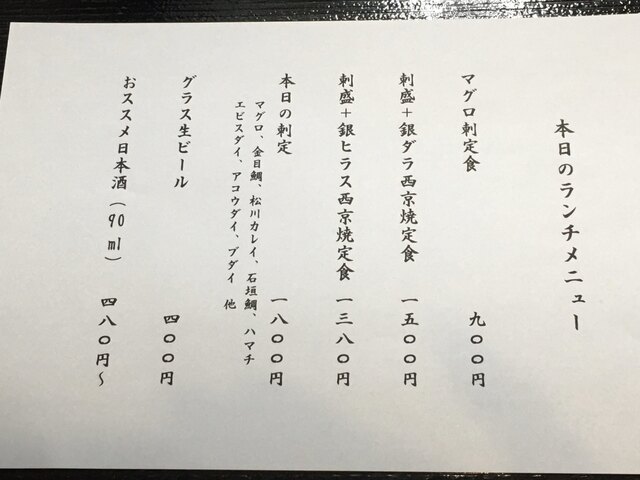 本日のランチメニュー
マグロ刺定食 九〇〇円
刺盛＋銀ダラ西京焼定食 一五〇〇円
刺盛＋銀ヒラス西京焼定食 一三八〇円
本日の刺定 一八〇〇円
マグロ、金目鯛、松川カレイ、石垣鯛、ハマチ
エビスダイ、アコウダイ、ブダイ 他
グラス生ビール 四〇〇円
おススメ日本酒（90ml） 四八〇円～